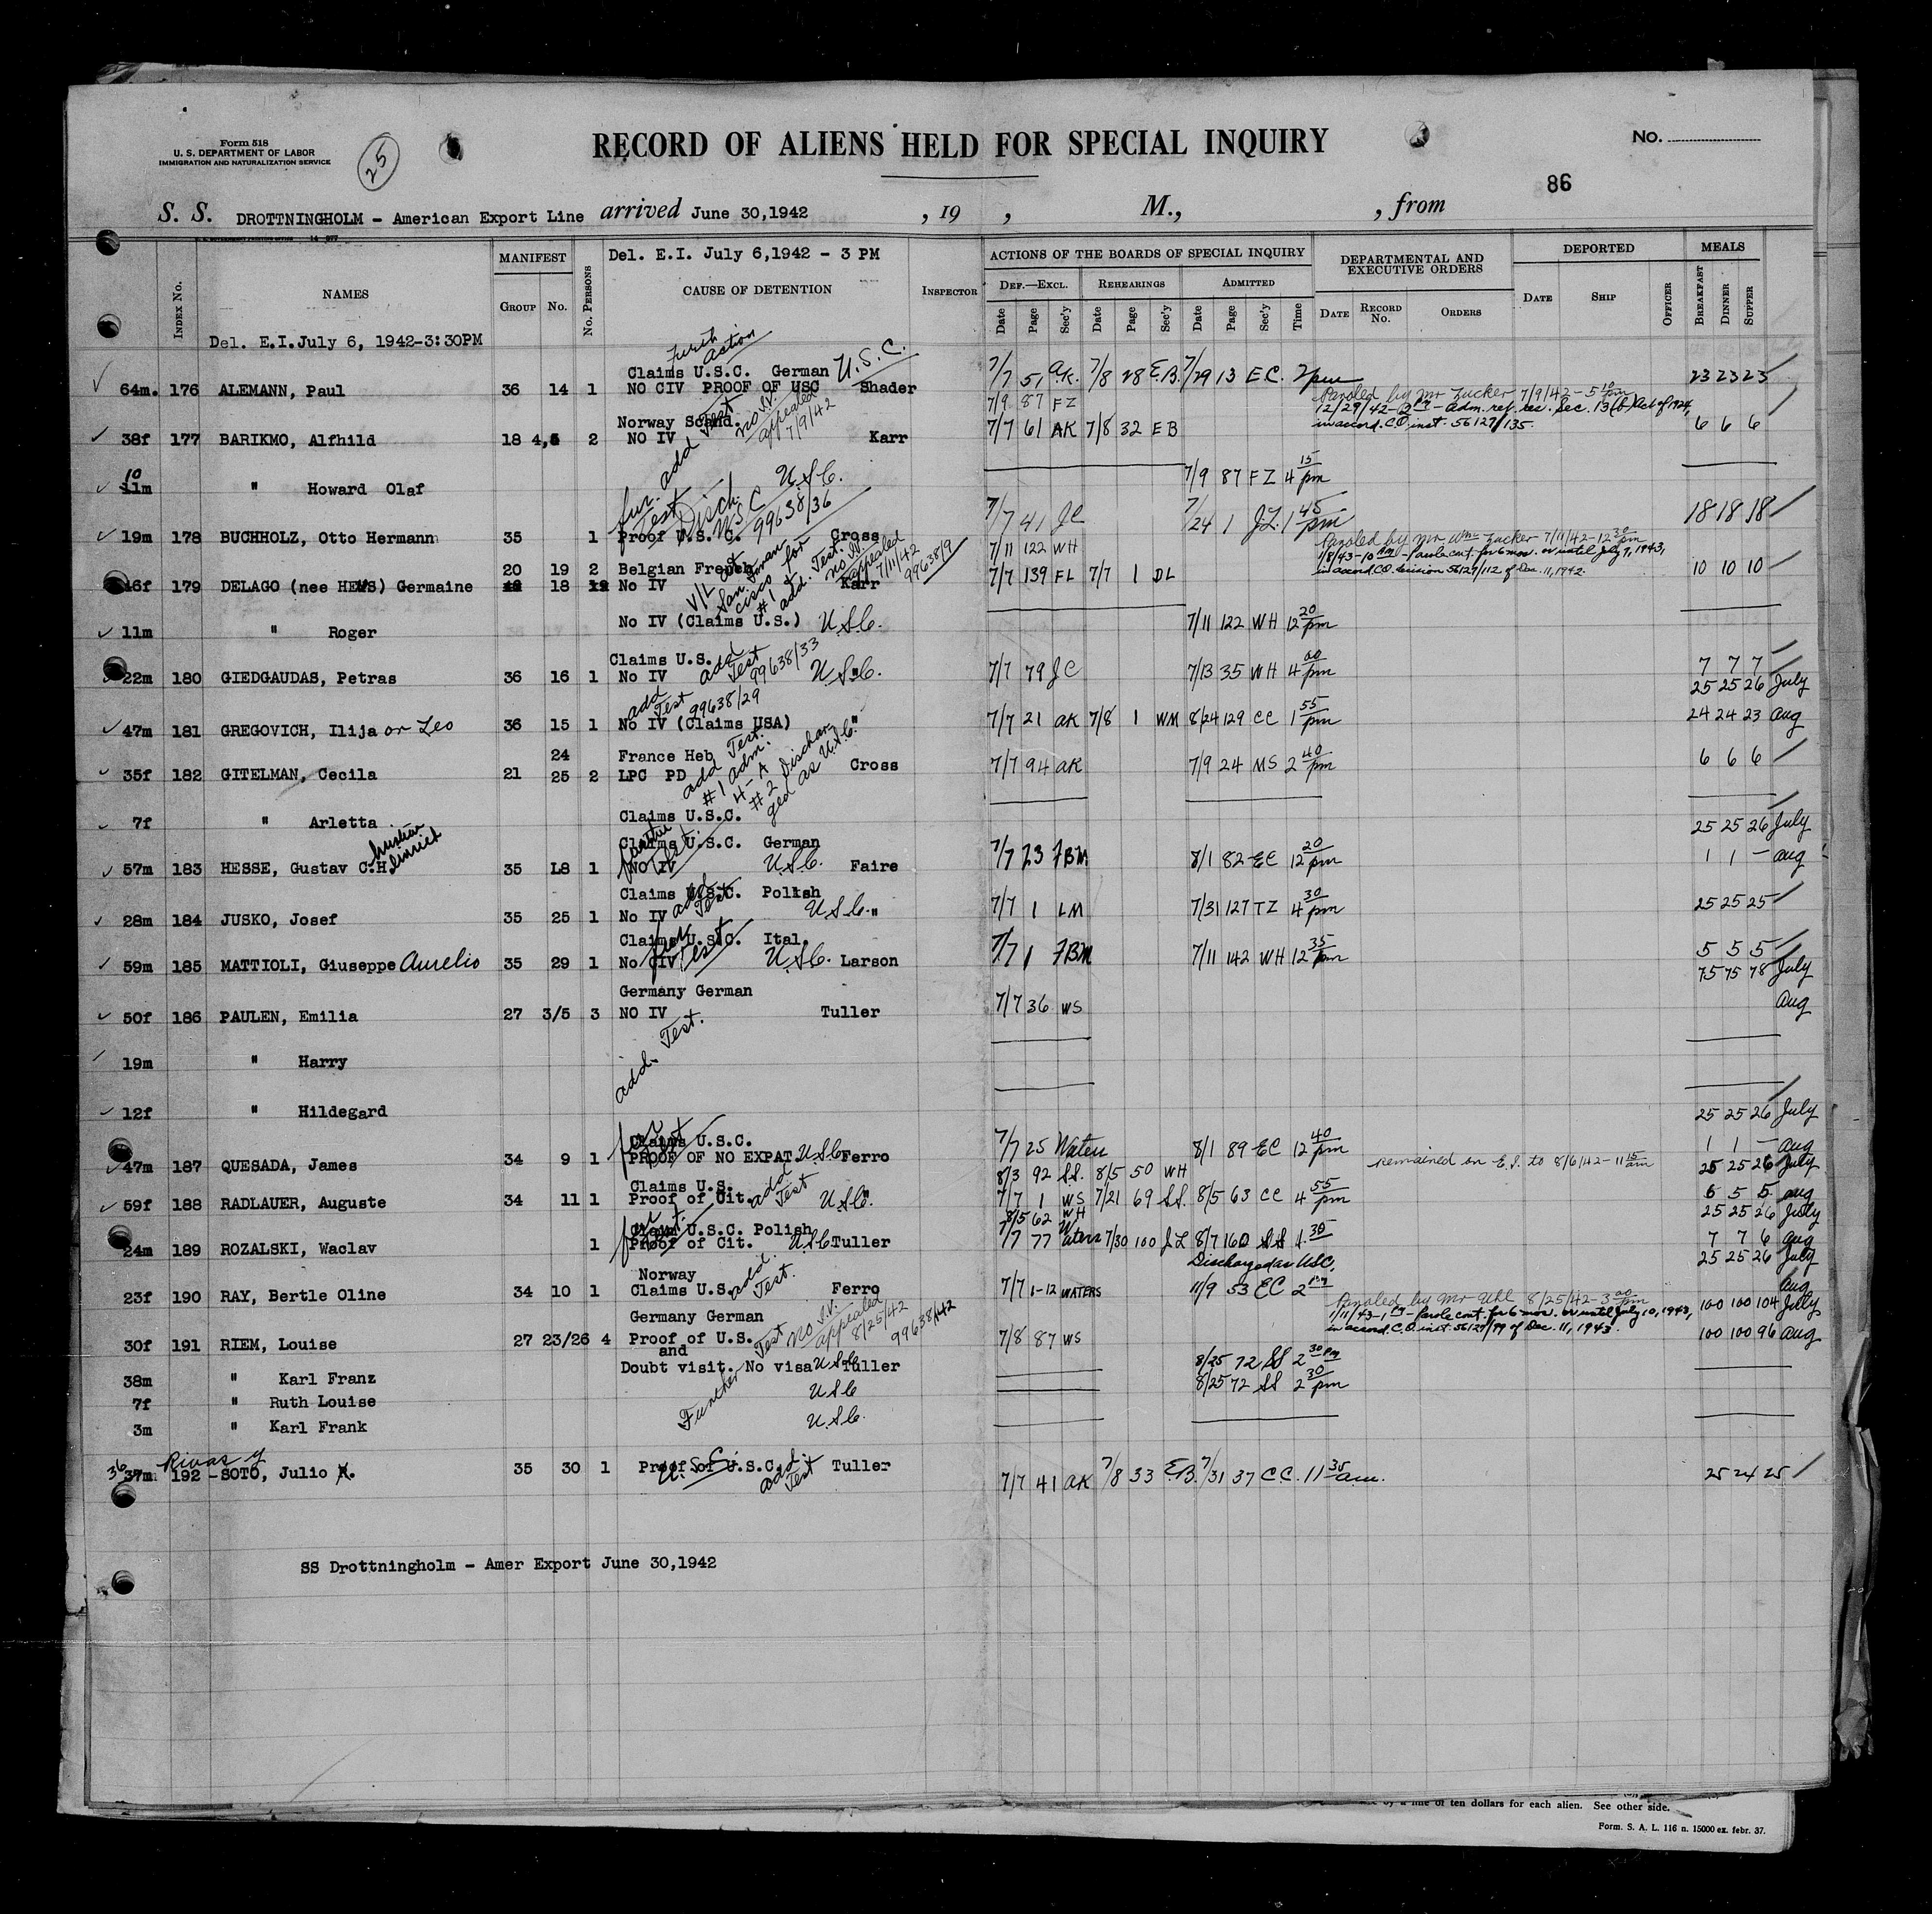 Form 518
U. S. DEPARTMENT OF LABOR
IMMIGRATION AND NATURALIZATION SERVICE
25
RECORD OF ALIENS HELD FOR SPECIAL INQUIRY
No.
86
S. S. DROTTNINGHOLM - American Export Line arrived June 30,1942 , 19 , M., , from
MANIFEST Del. E.I. July 6,1942 - 3 PM ACTIONS OF THE BOARDS OF SPECIAL INQUIRY DEPARTMENTAL AND EXECUTIVE ORDERS DEPORTED MEALS
Index No. NAMES Group No. No. Persons CAUSE OF DETENTION Inspector Def.—Excl. Rehearings Admitted Date Record No. Orders Date Ship Officer Breakfast Dinner Supper
Date Page Sec'y Date Page Sec'y Date Page Sec'y Time
Del. E.I.July 6, 1942-3:30PM
Action
Claims U.S.C. German U.S.C.
64m. 176 ALEMANN, Paul 36 14 1 NO CIV PROOF OF USC Shader 7/7 51 A.K. 7/8 28 E.B. 7/29 13 E.C. 2pm 23 23 23
7/9 87 FZ Paroled by Mr Zucker 7/9/42 - 5 10 pm
12/29/42 - Adm. ref. res. Sec. 13(b) Act of 1924,
in accord. C.O. inst. 56127/135.
Norway Scand. add Test no I.V. appealed 7/9/42
38f 177 BARIKMO, Alfhild 18 4,5 2 NO IV Karr 7/7 61 AK 7/8 32 EB 6 6 6
10
11m " Howard Olaf U.S.C. 7/9 87 FZ 4 15 pm
fur. Test Disch. USC 99638/36
19m 178 BUCHHOLZ, Otto Hermann 35 1 Proof U.S.C. Cross 7/7 41 JC 7/24 1 J.L. 1 45 pm 18 18 18
7/11 122 WH Paroled by Mr Wm Zucker 7/11/42 - 12 30 pm
1/8/43 - 10 - Parole cont. for 6 mos. or until July 7, 1943,
in accord C.O. decision 56127/112 of Dec. 11, 1942.
20 19 2 Belgian French
46f 179 DELAGO (nee HEMS) Germaine 18 No IV Karr 7/7 139 FL 7/7 1 DL 10 10 10
San Francisco for #1 add. Test. appealed 7/11/42 99638/9
No IV (Claims U.S.) U.S.C.
11m " Roger 7/11 122 WH 12 20 pm
Claims U.S. add Test 99638/33
22m 180 GIEDGAUDAS, Petras 36 16 1 No IV U.S.C. " 7/7 79 JC 7/13 35 WH 4 00 pm 7 7 7
25 25 26 July
add Test 99638/29
47m 181 GREGOVICH, Ilija or Leo 36 15 1 No IV (Claims USA) " 7/7 21 AK 7/8 1 WM 8/24 129 CC 1 55 pm 24 24 23 aug
24 France Heb add Test.
35f 182 GITELMAN, Cecila 21 25 2 LPC PD Cross 7/7 94 AK 7/9 24 MS 2 40 pm 6 6 6
#1 adm. 4-A #2 Discharged as U.S.C.
7f " Arletta Claims U.S.C.
25 25 26 July
Claims U.S.C. German
57m 183 HESSE, Gustav C.H. 35 18 1 No IV U.S.C. Faire 7/7 23 FBM 8/1 82 EC 12 20 pm 1 1 - aug
Claims U.S.C. Polish add Test
28m 184 JUSKO, Josef 35 25 1 No IV U.S.C. " 7/7 1 LM 7/31 127 TZ 4 30 pm 25 25 25
Claims U.S.C. Ital. fur Test
59m 185 MATTIOLI, Giuseppe Aurelio 35 29 1 No CIV U.S.C. Larson 7/7 1 FBM 7/11 142 WH 12 35 pm 5 5 5
75 75 78 July
Germany German
50f 186 PAULEN, Emilia 27 3/5 3 NO IV Tuller 7/7 36 WS Aug
add. Test.
19m " Harry
12f " Hildegard
25 25 26 July
Claims U.S.C.
47m 187 QUESADA, James 34 9 1 PROOF OF NO EXPAT. U.S.C. Ferro 7/7 25 Waters 8/1 89 EC 12 40 pm 1 1 - aug
8/3 92 S.S. 8/5 50 WH Remained on E.I. to 8/6/42 - 11 15 am 25 25 26 July
Claims U.S. add Test
59f 188 RADLAUER, Auguste 34 11 1 Proof of Cit. U.S.C. " 7/7 1 WS 7/21 69 S.S. 8/5 63 CC 4 55 pm 6 5 5 aug
8/5 62 WH 25 25 26 July
Claims U.S.C. Polish fur Test.
24m 189 ROZALSKI, Waclav 1 Proof of Cit. U.S.C. Tuller 7/7 77 Waters 7/30 100 J.L 8/7 160 SS 1 30 7 7 6 aug
Discharged as USC. 25 25 26 July
Norway add. Test.
23f 190 RAY, Bertle Oline 34 10 1 Claims U.S. Ferro 7/7 1-12 WATERS 11/9 53 EC 2 pm Aug
Paroled by Mr Uhl 8/25/42 - 3 00 pm 100 100 104 July
1/11/43 - 1 - Parole cont. for 6 mos. or until July 10, 1943,
in accord. C.O. inst. 56127/99 of Dec. 11, 1943.
Germany German no I.V. appealed 8/25/42 99638/42
30f 191 RIEM, Louise 27 23/26 4 Proof of U.S. 7/8 87 WS 100 100 96 aug
and
Doubt visit. No visa U.S.C. Tuller 8/25 72 SS 2 30 pm
38m " Karl Franz Further Test
7f " Ruth Louise U.S.C 8/25 72 SS 2 30 pm
3m " Karl Frank U.S.C.
36 Rivas y
37m 192 - SOTO, Julio 35 30 1 Proof of U.S.C. U.S.C. add. Test Tuller 7/7 41 AK 7/8 33 E.B. 7/31 37 C.C. 11 35 a.m. 25 24 25
SS Drottningholm - Amer Export June 30,1942
of ten dollars for each alien. See other side.
Form. S. A. L. 116 n. 15000 ex. febr. 37.